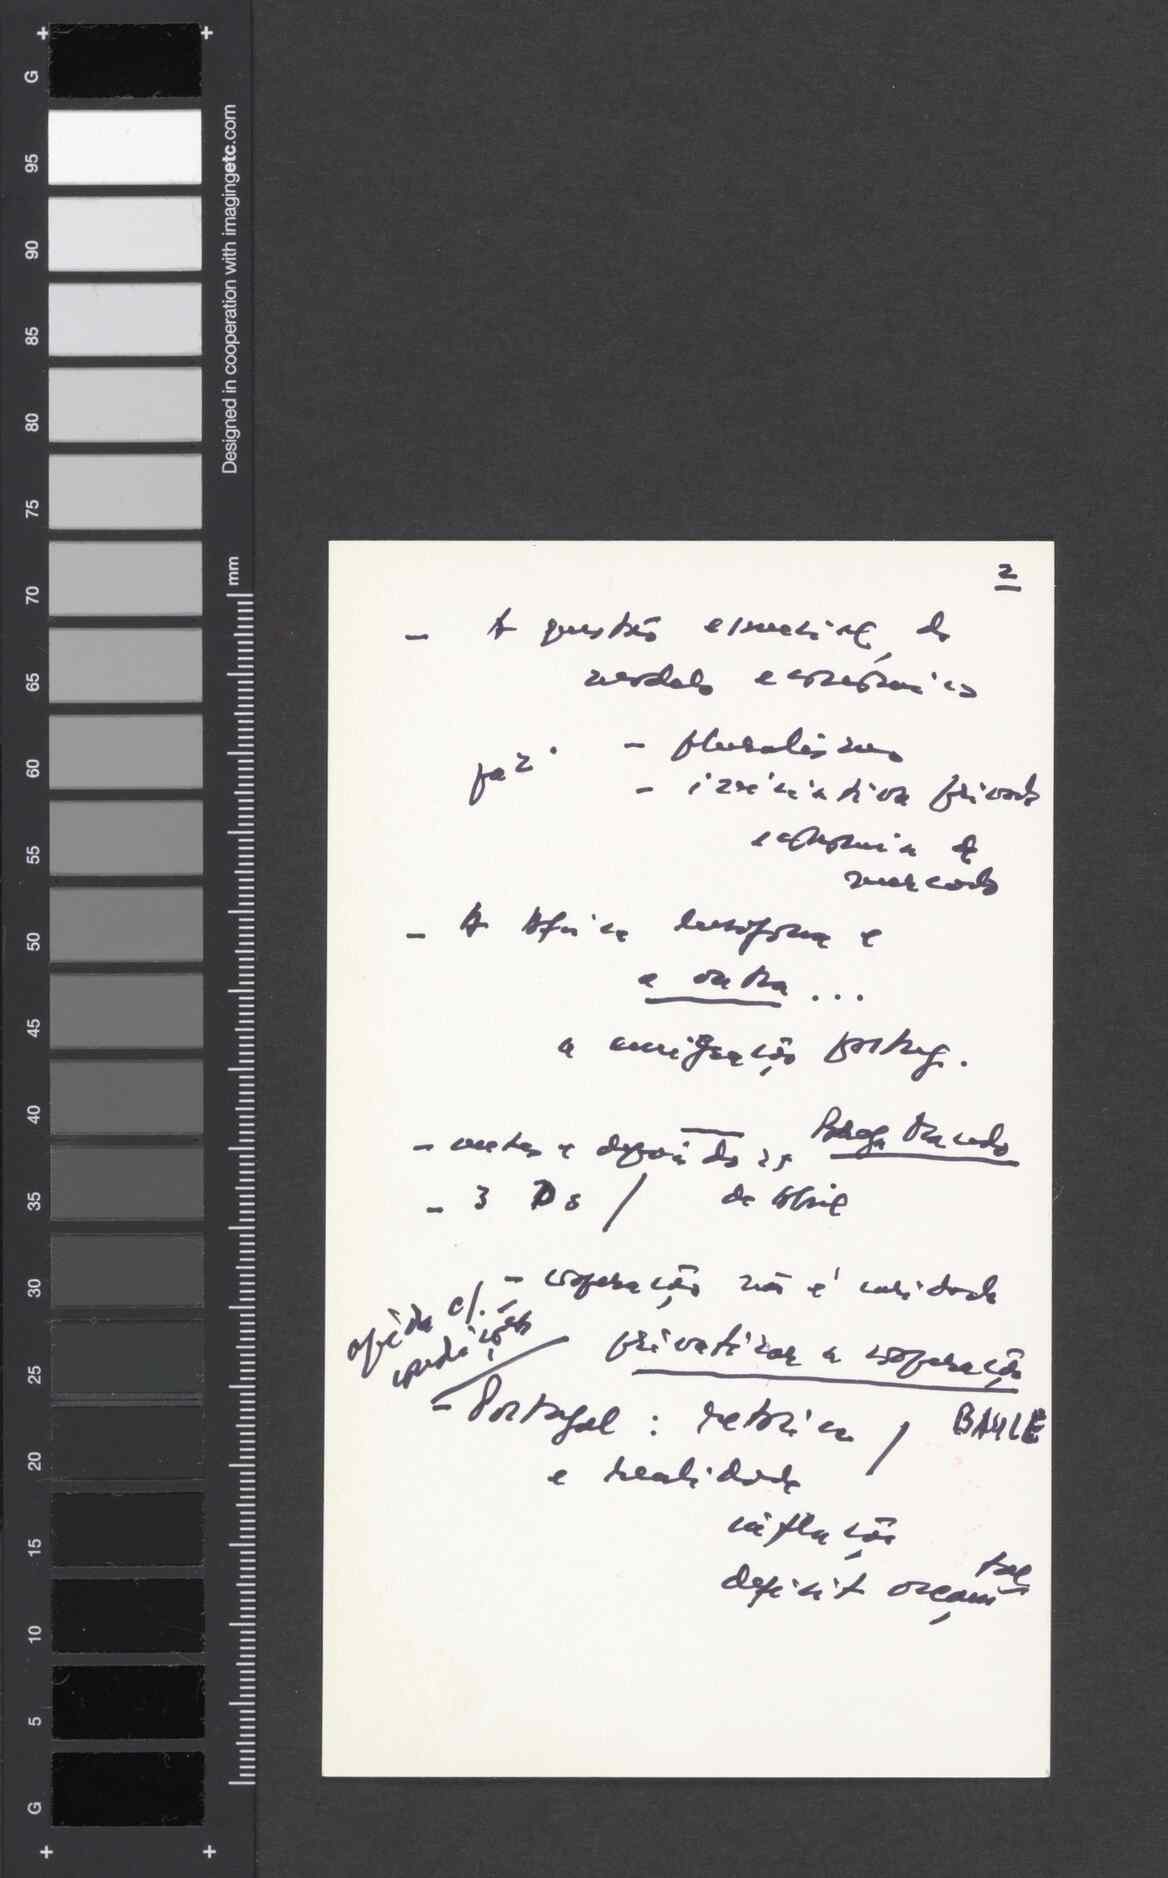 G
95
90
85
80
75
70
65
60
55
50
45
40
35
30
25
20
15
10
5
G
Designed in cooperation with imagingetc.com
mm
2
- A questão essencial, do
modelo económico
paz. - pluralismo
- iniciativa privada
economia de
mercado
- A África lusófona e
a outra ...
a emigração portug.
- antes e depois do 25
de Abril
- 3 Ds /
- cooperação não é caridade
ajuda c/.
privatizar a cooperação
- Portugal : retórica / BAYLE
e realidade
inflação
deficit orçamental